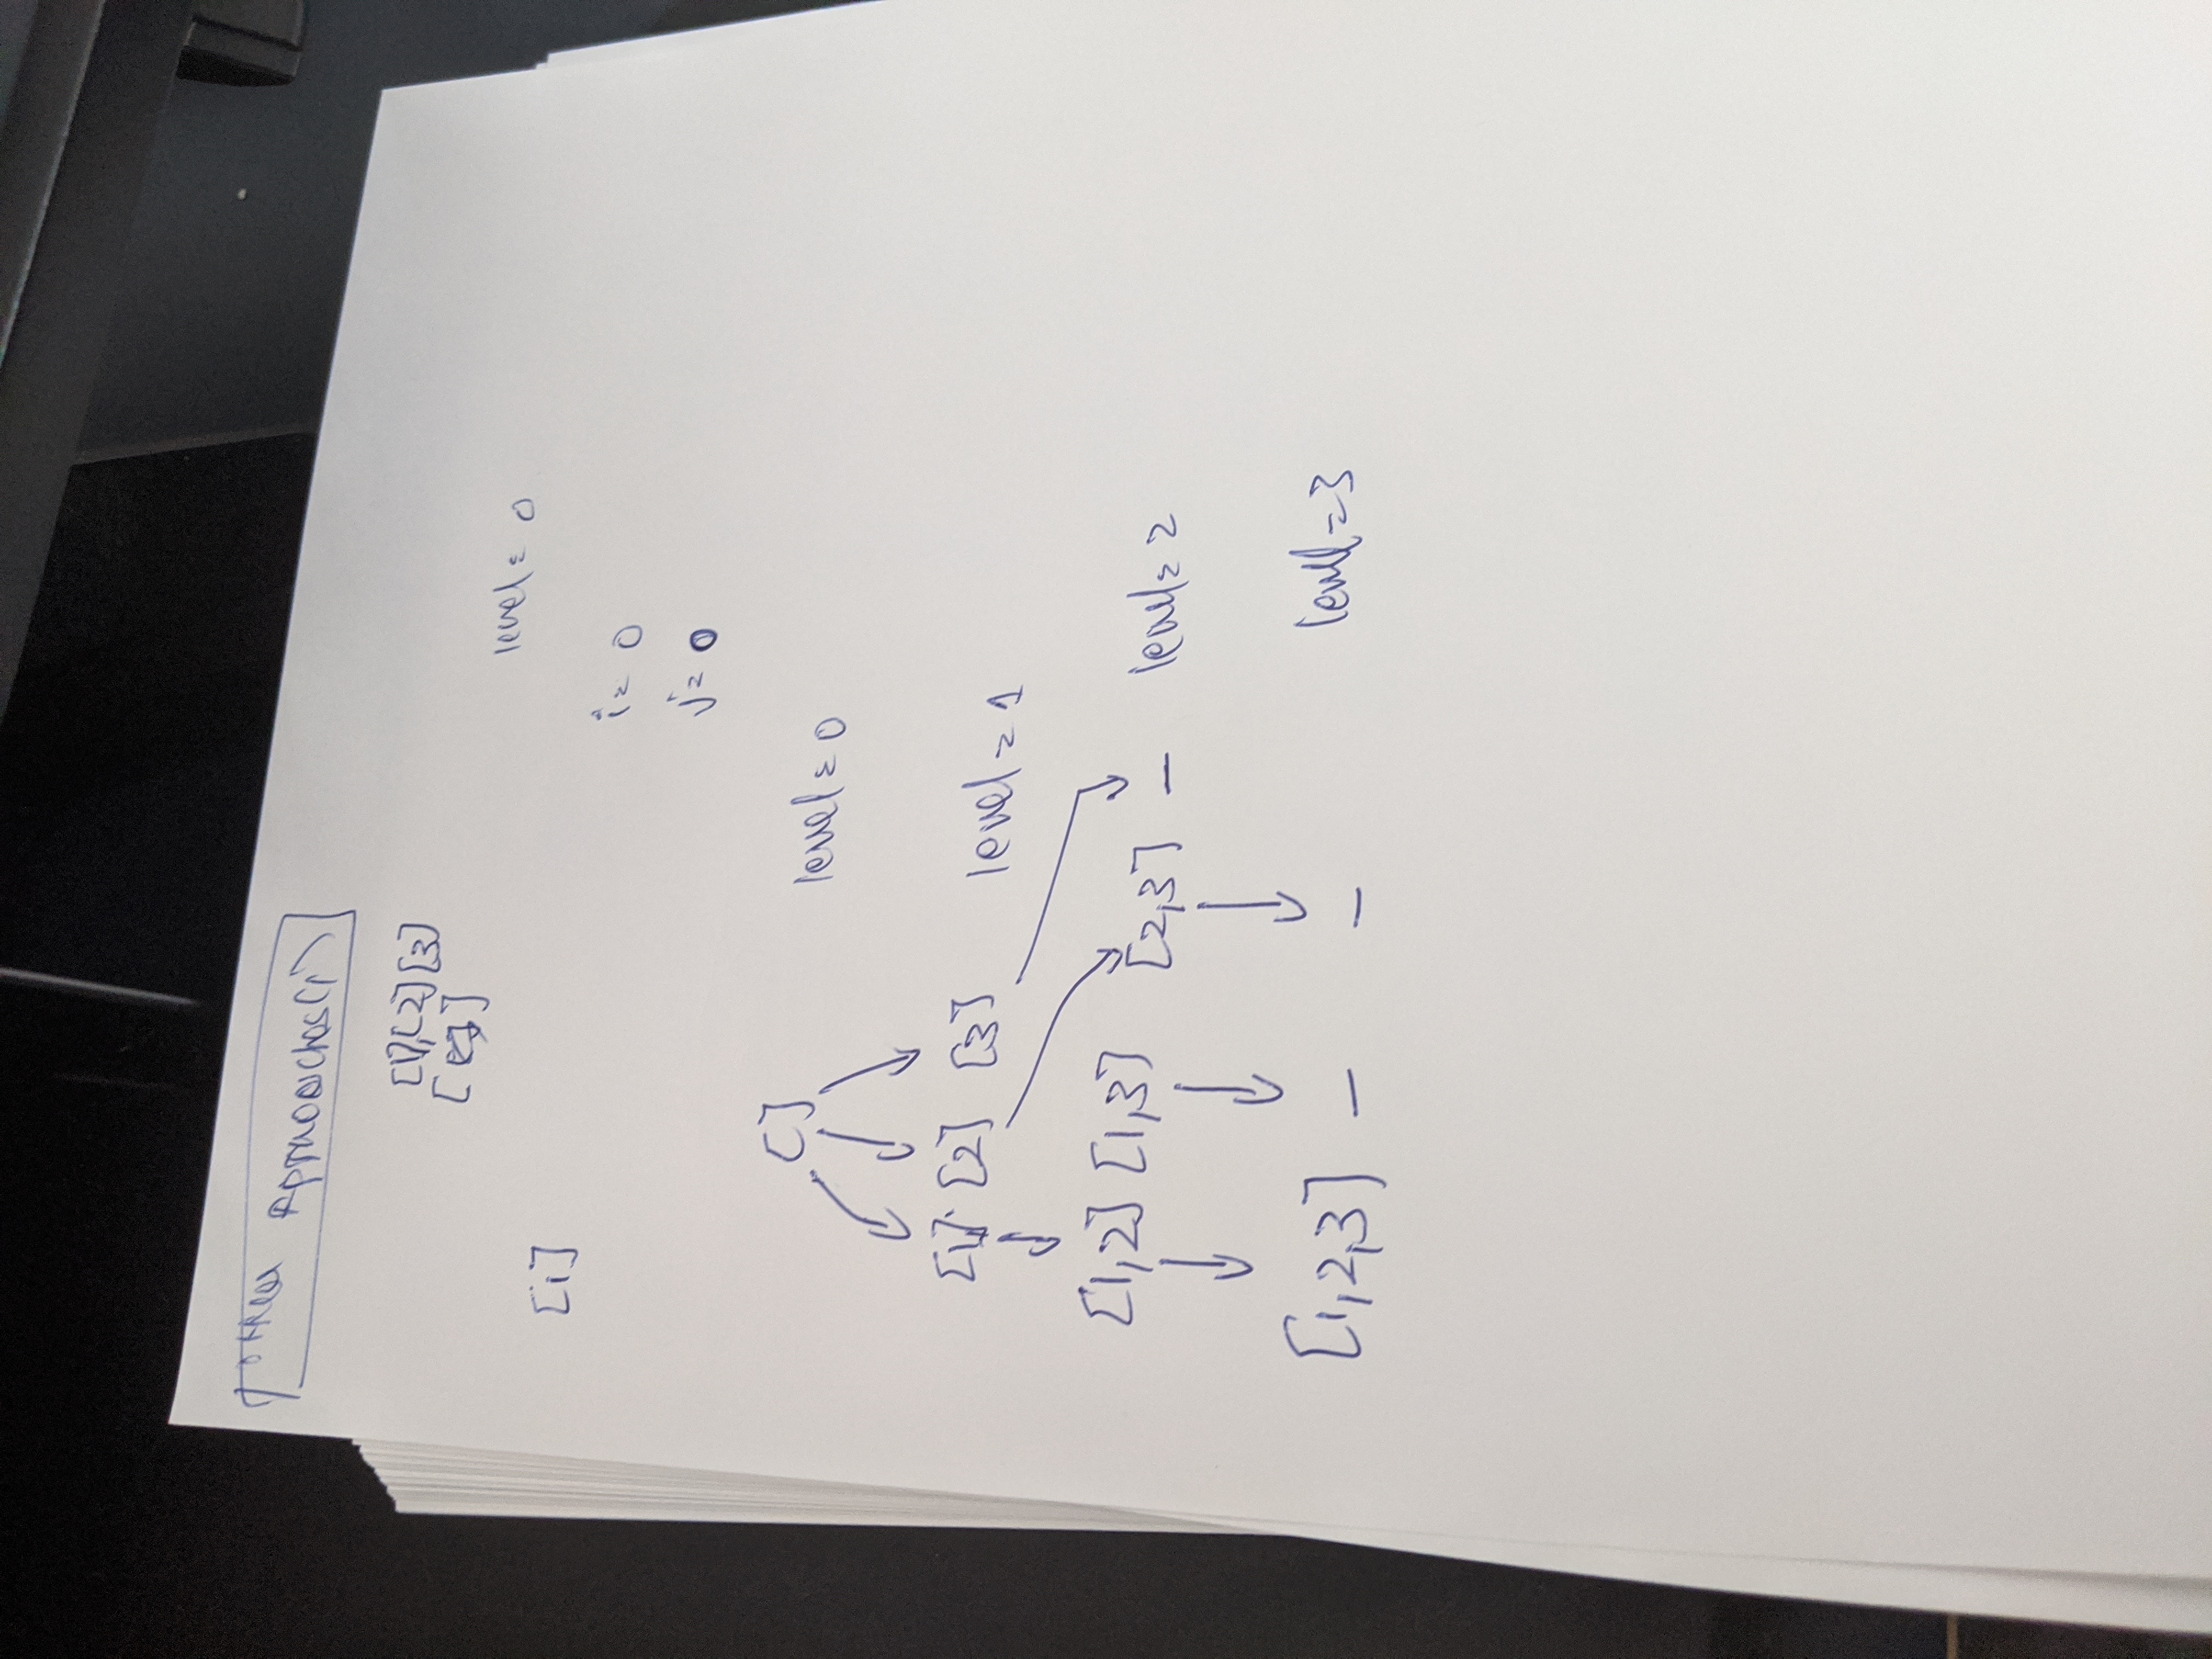 other Approaches(1)
[1],[2][3]
[ ]
level = 0
[i]
i = 0
j = 0
[]
level = 0
[1] [2] [3]
level = 1
[1,2] [1,3] [2,3] – level = 2
[1,2,3] – – level = 3